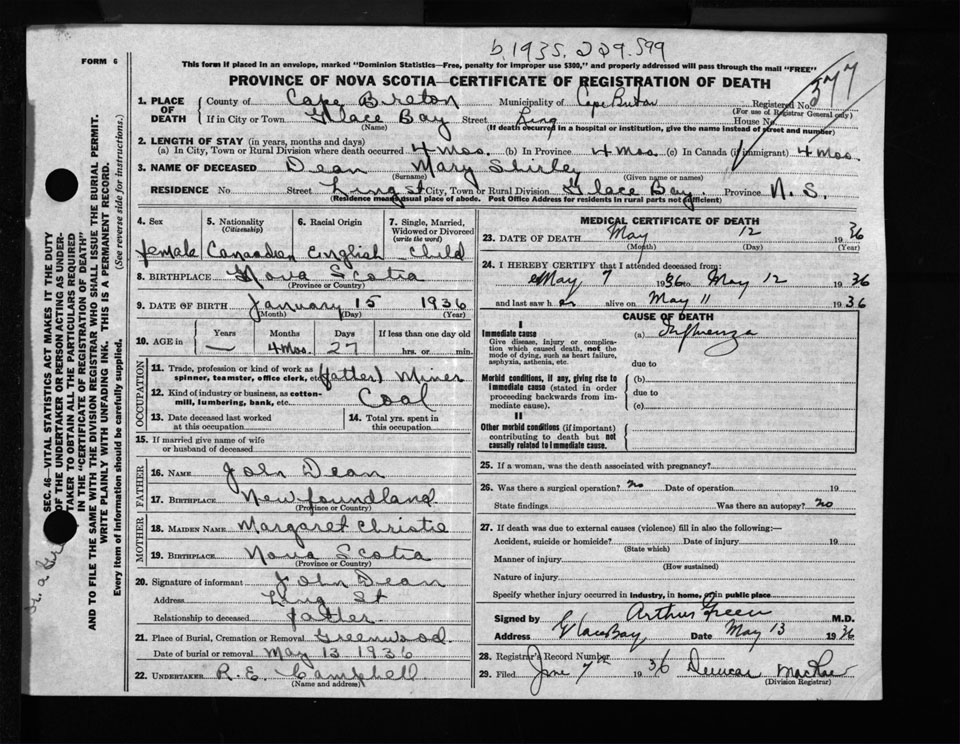 b 1935. 229.599
FORM 6
This form if placed in an envelope, marked "Dominion Statistics—Free, penalty for improper use $300," and properly addressed will pass through the mail "FREE"
PROVINCE OF NOVA SCOTIA—CERTIFICATE OF REGISTRATION OF DEATH
377
1. PLACE OF DEATH
County of Cape Breton Municipality of Cape Breton Registered No.
(For use of Registrar General only)
If in City or Town Glace Bay Street Ling House No.
(Name) (If death occurred in a hospital or institution, give the name instead of street and number)
2. LENGTH OF STAY (in years, months and days)
(a) In City, Town or Rural Division where death occurred 4 Mos. (b) In Province 4 Mos. (c) In Canada (if immigrant) 4 Mos.
3. NAME OF DECEASED Dean Mary Shirley
(Surname) (Given name or names)
RESIDENCE No. Street Ling St City, Town or Rural Division Glace Bay. Province N. S.
(Residence means usual place of abode. Post Office Address for residents in rural parts not sufficient)
4. Sex
female
5. Nationality
(Citizenship)
Canadian
6. Racial Origin
English
7. Single, Married, Widowed or Divorced
(write the word)
Child
8. BIRTHPLACE Nova Scotia
(Province or Country)
9. DATE OF BIRTH January 15 1936
(Month) (Day) (Year)
10. AGE in
Years Months Days If less than one day old
— 4 Mos. 27 hrs. or min.
OCCUPATION
11. Trade, profession or kind of work as spinner, teamster, office clerk, etc. (father) Miner
12. Kind of industry or business, as cotton-mill, lumbering, bank, etc. Coal
13. Date deceased last worked at this occupation
14. Total yrs. spent in this occupation
15. If married give name of wife or husband of deceased
FATHER
16. NAME John Dean
17. BIRTHPLACE Newfoundland
(Province or Country)
MOTHER
18. MAIDEN NAME Margaret Christie
19. BIRTHPLACE Nova Scotia
(Province or Country)
20. Signature of informant John Dean
Address Ling St
Relationship to deceased father
21. Place of Burial, Cremation or Removal Greenwood
Date of burial or removal May 13 1936
22. UNDERTAKER R. E. Campbell
(Name and address)
MEDICAL CERTIFICATE OF DEATH
23. DATE OF DEATH May 12 1936
(Month) (Day) (Year)
24. I HEREBY CERTIFY that I attended deceased from:
May 7 1936 to May 12 1936
and last saw her alive on May 11 1936
CAUSE OF DEATH
I
Immediate cause
Give disease, injury or complication which caused death, not the mode of dying, such as heart failure, asphyxia, asthenia, etc.
(a) Influenza
due to
Morbid conditions, if any, giving rise to immediate cause (stated in order proceeding backwards from immediate cause).
(b)
due to
(c)
II
Other morbid conditions (if important) contributing to death but not causally related to immediate cause.
25. If a woman, was the death associated with pregnancy?
26. Was there a surgical operation? no Date of operation 19
State findings Was there an autopsy? no
27. If death was due to external causes (violence) fill in also the following:—
Accident, suicide or homicide? Date of injury 19
(State which)
Manner of injury
(How sustained)
Nature of injury
Specify whether injury occurred in industry, in home, or in public place
Signed by Arthur Green M.D.
Address Glace Bay Date May 13 1936
28. Registrar's Record Number
29. Filed June 7th 1936 Duncan MacRae
(Division Registrar)
SEC. 46—VITAL STATISTICS ACT MAKES IT THE DUTY
OF THE UNDERTAKER OR PERSON ACTING AS UNDER-
TAKER TO OBTAIN ALL THE PARTICULARS REQUIRED
IN THE "CERTIFICATE OF REGISTRATION OF DEATH"
AND TO FILE THE SAME WITH THE DIVISION REGISTRAR WHO SHALL ISSUE THE BURIAL PERMIT.
WRITE PLAINLY WITH UNFADING INK. THIS IS A PERMANENT RECORD.
Every item of information should be carefully supplied. (See reverse side for instructions.)